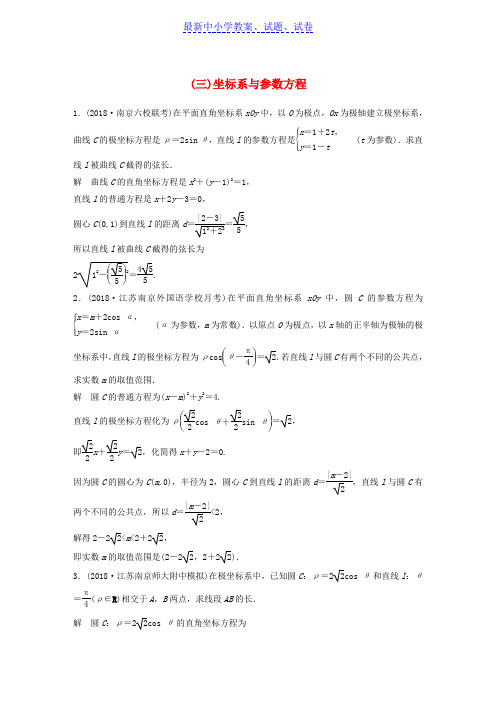 最新中小学教案、试题、试卷
(三)坐标系与参数方程
1．(2018·南京六校联考)在平面直角坐标系 xOy 中，以 O 为极点，Ox 为极轴建立极坐标系，
曲线 C 的极坐标方程是 ρ＝2sin θ，直线 l 的参数方程是{x＝1＋2t，y＝1－t (t 为参数)．求直
线 l 被曲线 C 截得的弦长．
解 曲线 C 的直角坐标方程是 x²＋(y－1)²＝1，
直线 l 的普通方程是 x＋2y－3＝0，
圆心 C(0,1)到直线 l 的距离 d＝|2－3|/√(1²＋2²)＝√5/5，
所以直线 l 被曲线 C 截得的弦长为
2√(1²－(√5/5)²)＝4√5/5.
2．(2018·江苏南京外国语学校月考)在平面直角坐标系 xOy 中，圆 C 的参数方程为
{x＝m＋2cos α，y＝2sin α (α 为参数，m 为常数)．以原点 O 为极点，以 x 轴的正半轴为极轴的极
坐标系中，直线 l 的极坐标方程为 ρcos(θ－π/4)＝√2.若直线 l 与圆 C 有两个不同的公共点，
求实数 m 的取值范围．
解 圆 C 的普通方程为(x－m)²＋y²＝4.
直线 l 的极坐标方程化为 ρ(√2/2cos θ＋√2/2sin θ)＝√2，
即√2/2x＋√2/2y＝√2，化简得 x＋y－2＝0.
因为圆 C 的圆心为 C(m,0)，半径为 2，圆心 C 到直线 l 的距离 d＝|m－2|/√2，直线 l 与圆 C 有
两个不同的公共点，所以 d＝|m－2|/√2<2，
解得 2－2√2<m<2＋2√2，
即实数 m 的取值范围是(2－2√2，2＋2√2)．
3．(2018·江苏南京师大附中模拟)在极坐标系中，已知圆 C：ρ＝2√2cos θ 和直线 l：θ
＝π/4(ρ∈R)相交于 A，B 两点，求线段 AB 的长．
解 圆 C：ρ＝2√2cos θ 的直角坐标方程为